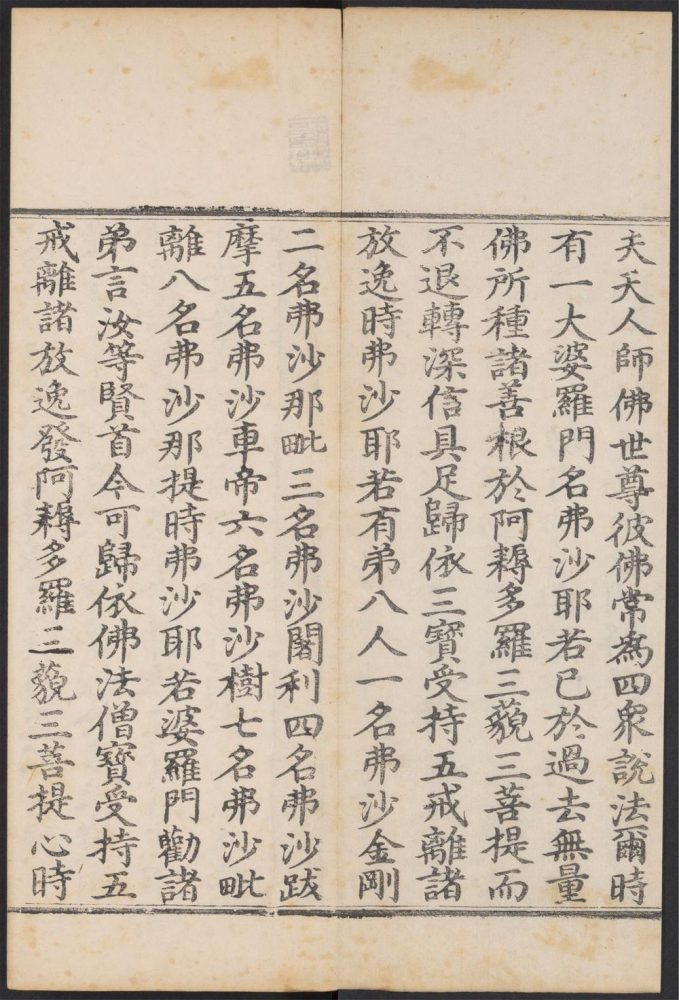 夫天人師佛世尊彼佛常為四衆說法爾時
有一大婆羅門名弗沙耶若已於過去無量
佛所種諸善根於阿耨多羅三藐三菩提而
不退轉深信具足歸依三寶受持五戒離諸
放逸時弗沙耶若有弟八人一名弗沙金剛
二名弗沙那毗三名弗沙闍利四名弗沙跋
摩五名弗沙車帝六名弗沙樹七名弗沙毗
離八名弗沙那提時弗沙耶若婆羅門勸諸
弟言汝等賢首今可歸依佛法僧寶受持五
戒離諸放逸發阿耨多羅三藐三菩提心時